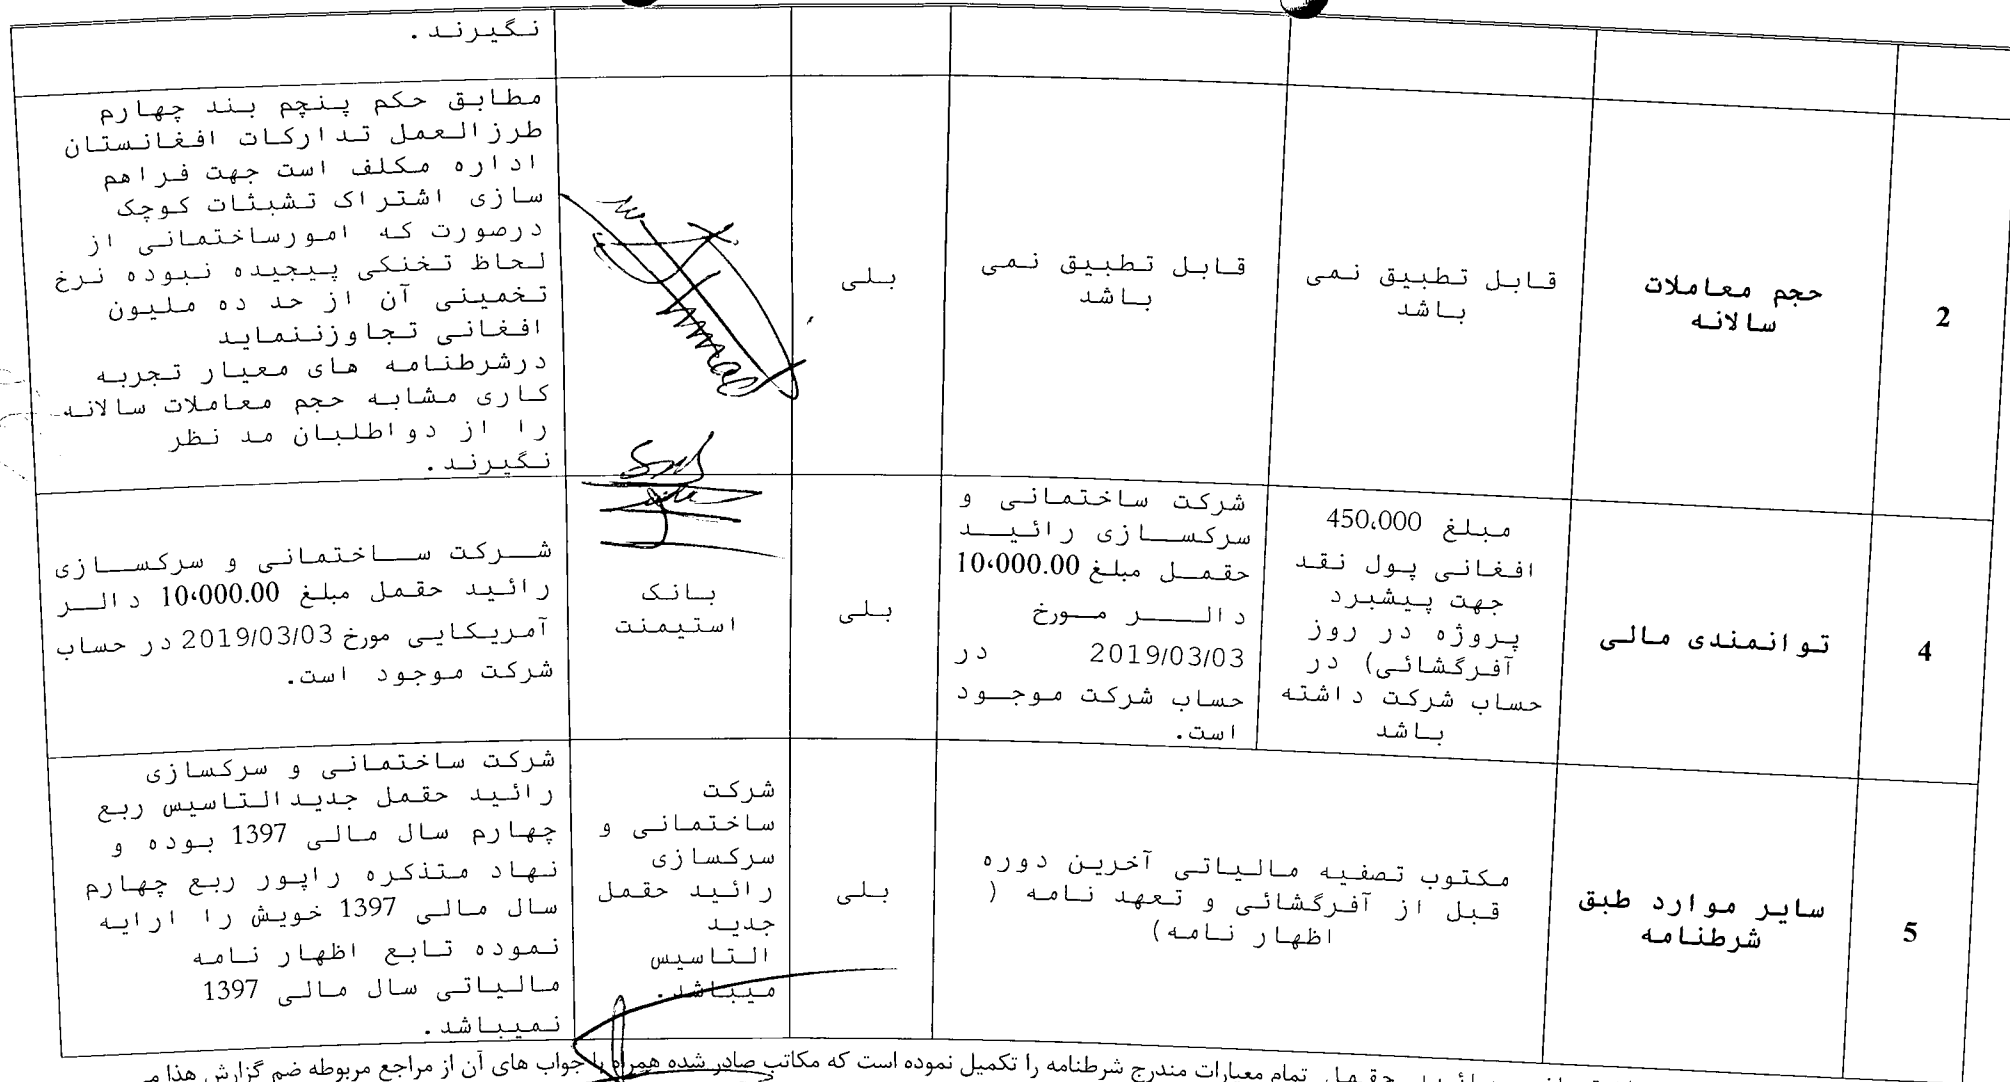 نگیرند.
2
حجم معاملات
سالانه
قابل تطبیق نمی
باشد
قابل تطبیق نمی
باشد
بلی
مطابق حکم پنچم بند چهارم
طرزالعمل تدارکات افغانستان
اداره مکلف است جهت فراهم
سازی اشتراک تشبثات کوچک
درصورت که امورساختمانی از
لحاظ تخنکی پیجیده نبوده نرخ
تخمینی آن از حد ده ملیون
افغانی تجاوزننماید
درشرطنامه های معیار تجربه
کاری مشابه حجم معاملات سالانه
را از دواطلبان مد نظر
نگیرند.
4
توانمندی مالی
مبلغ 450،000
افغانی پول نقد
جهت پیشبرد
پروژه در روز
آفرگشائی) در
حساب شرکت داشته
باشد
شرکت ساختمانی و
سرکسازی رائید
حقمل مبلغ 10،000.00
دالر مورخ
2019/03/03 در
حساب شرکت موجود
است.
بلی
بانک
استیمنت
شرکت ساختمانی و سرکسازی
رائید حقمل مبلغ 10،000.00 دالر
آمریکایی مورخ 2019/03/03 در حساب
شرکت موجود است.
5
سایر موارد طبق
شرطنامه
مکتوب تصفیه مالیاتی آخرین دوره
قبل از آفرگشائی و تعهد نامه (
اظهار نامه)
بلی
شرکت
ساختمانی و
سرکسازی
رائید حقمل
جدید
التاسیس
میباشد.
شرکت ساختمانی و سرکسازی
رائید حقمل جدیدالتاسیس ربع
چهارم سال مالی 1397 بوده و
نهاد متذکره راپور ربع چهارم
سال مالی 1397 خویش را ارایه
نموده تابع اظهار نامه
مالیاتی سال مالی 1397
نمیباشد.
حقمل تمام معیارات مندرج شرطنامه را تکمیل نموده است که مکاتب صادر شده همراه با جواب های آن از مراجع مربوطه ضم گزارش هذا